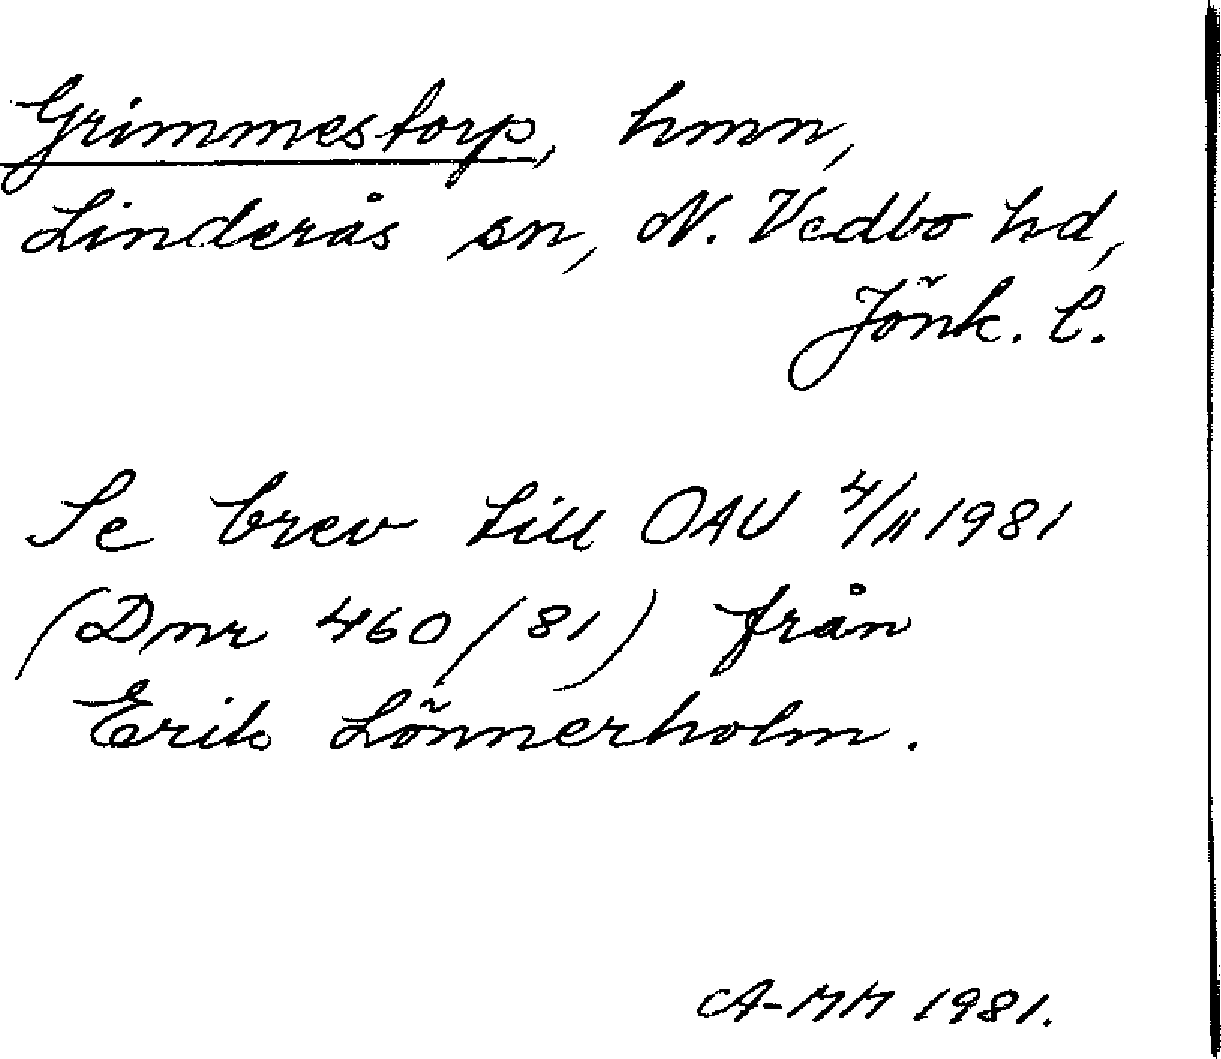 Grimmestorp, hmn,
Linderås sn, N. Vedbo hd,
Jönk. l.
Se brev till OAU 4/11 1981
(Dnr 460/81) från
Erik Lönnerholm.
A-MM 1981.